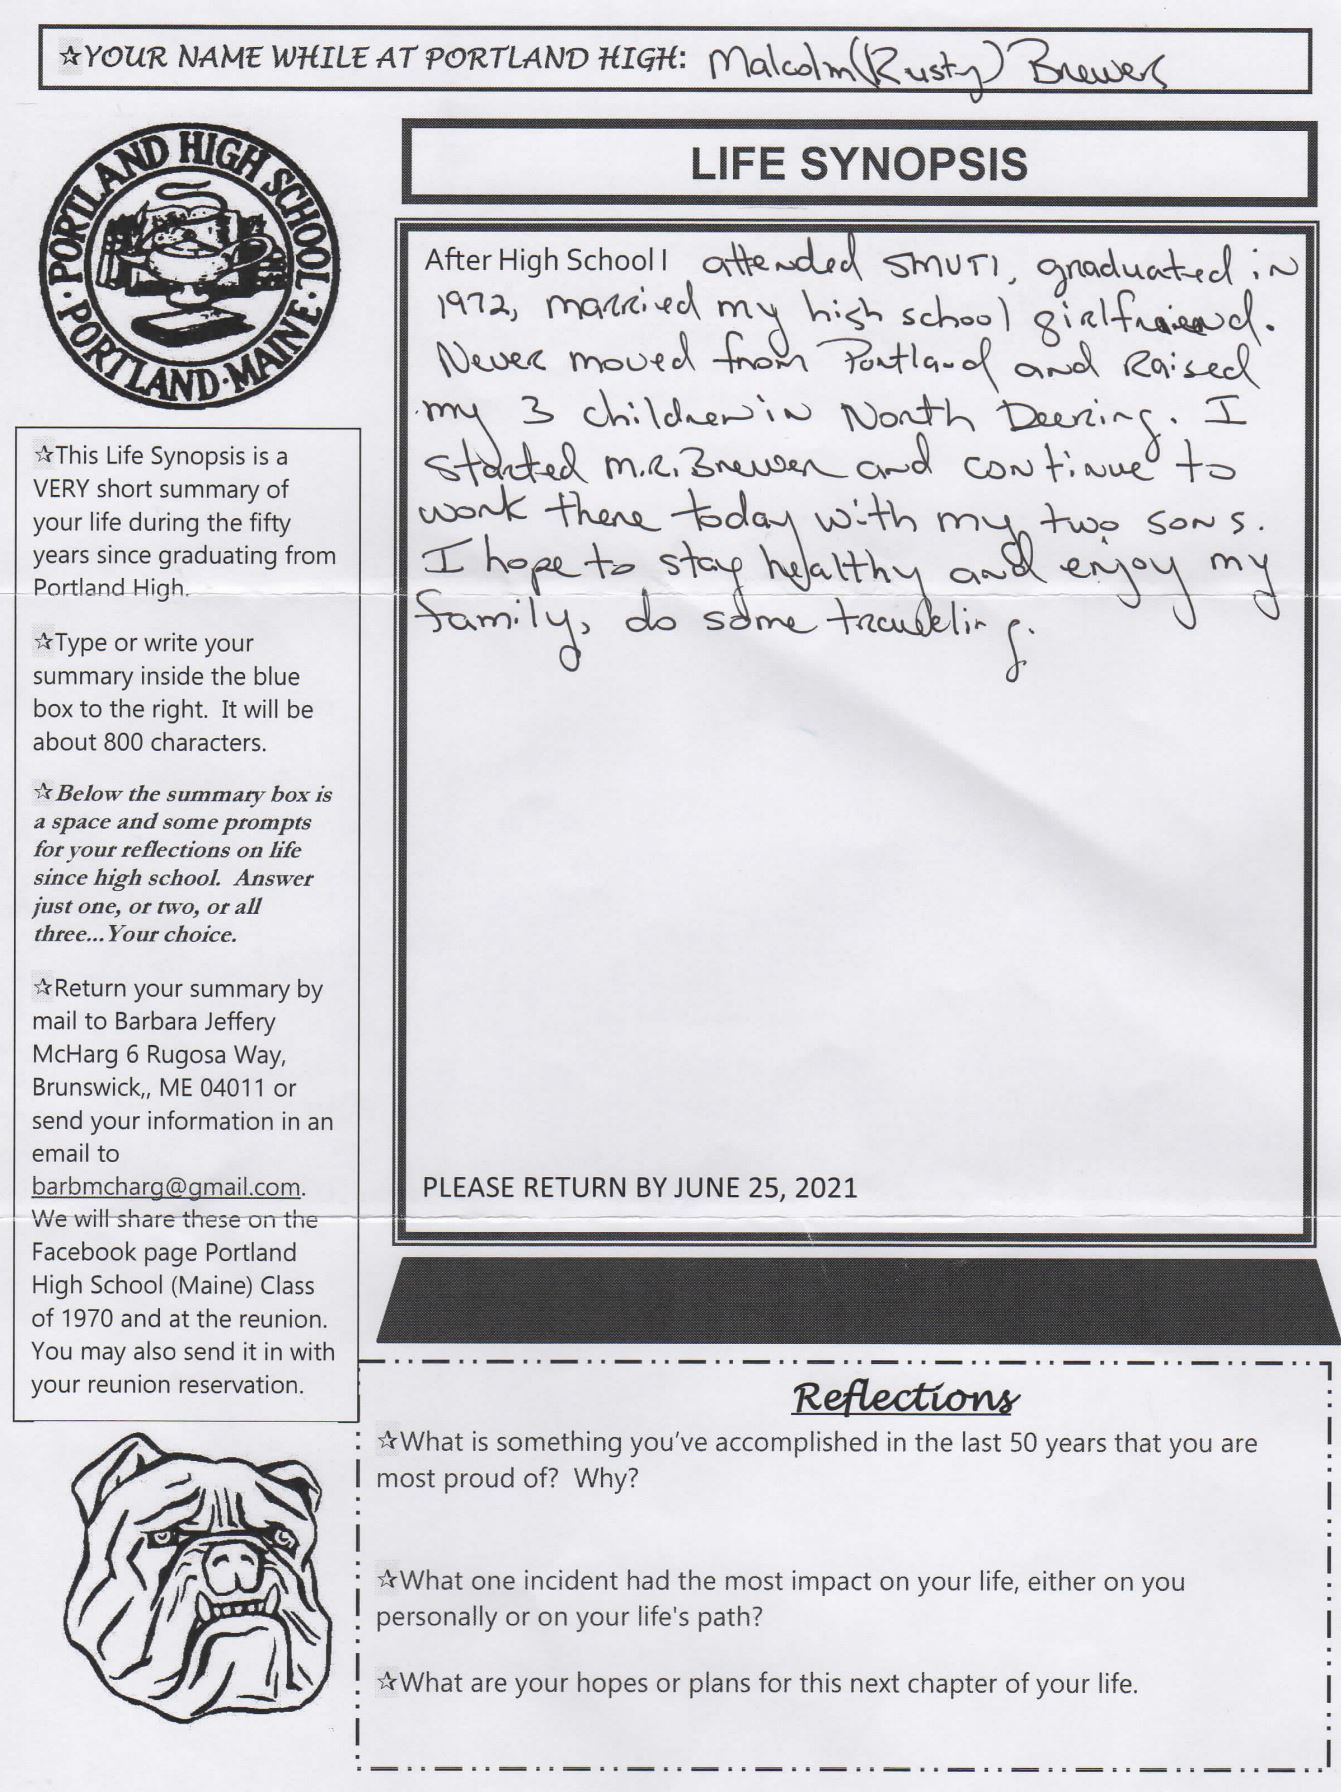 ☆YOUR NAME WHILE AT PORTLAND HIGH: Malcolm (Rusty) Brewer
PORTLAND HIGH SCHOOL · PORTLAND, MAINE ·
LIFE SYNOPSIS
After High School I attended SMVTI, graduated in
1972, married my high school girlfriend.
Never moved from Portland and Raised
my 3 children in North Deering. I
started M.R. Brewer and continue to
work there today with my two sons.
I hope to stay healthy and enjoy my
family, do some traveling.
PLEASE RETURN BY JUNE 25, 2021
☆This Life Synopsis is a
VERY short summary of
your life during the fifty
years since graduating from
Portland High.
☆Type or write your
summary inside the blue
box to the right. It will be
about 800 characters.
☆Below the summary box is
a space and some prompts
for your reflections on life
since high school. Answer
just one, or two, or all
three...Your choice.
☆Return your summary by
mail to Barbara Jeffery
McHarg 6 Rugosa Way,
Brunswick,, ME 04011 or
send your information in an
email to
barbmcharg@gmail.com.
We will share these on the
Facebook page Portland
High School (Maine) Class
of 1970 and at the reunion.
You may also send it in with
your reunion reservation.
Reflections
☆What is something you've accomplished in the last 50 years that you are
most proud of? Why?
☆What one incident had the most impact on your life, either on you
personally or on your life's path?
☆What are your hopes or plans for this next chapter of your life.